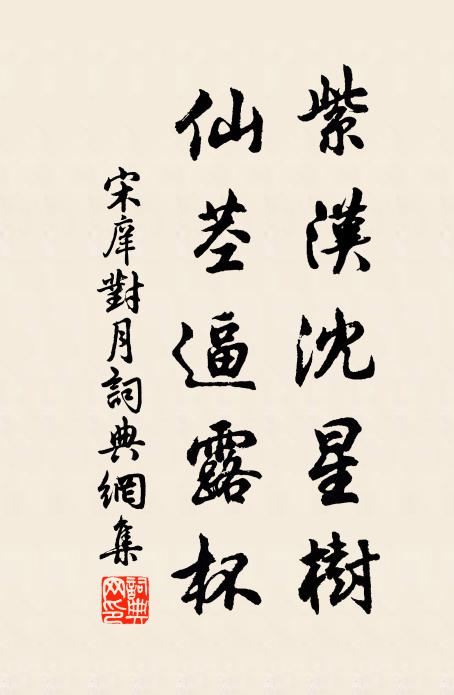 紫漢沈星樹
仙莖逼露杯
宋庠對月詞典網集
詞典網印